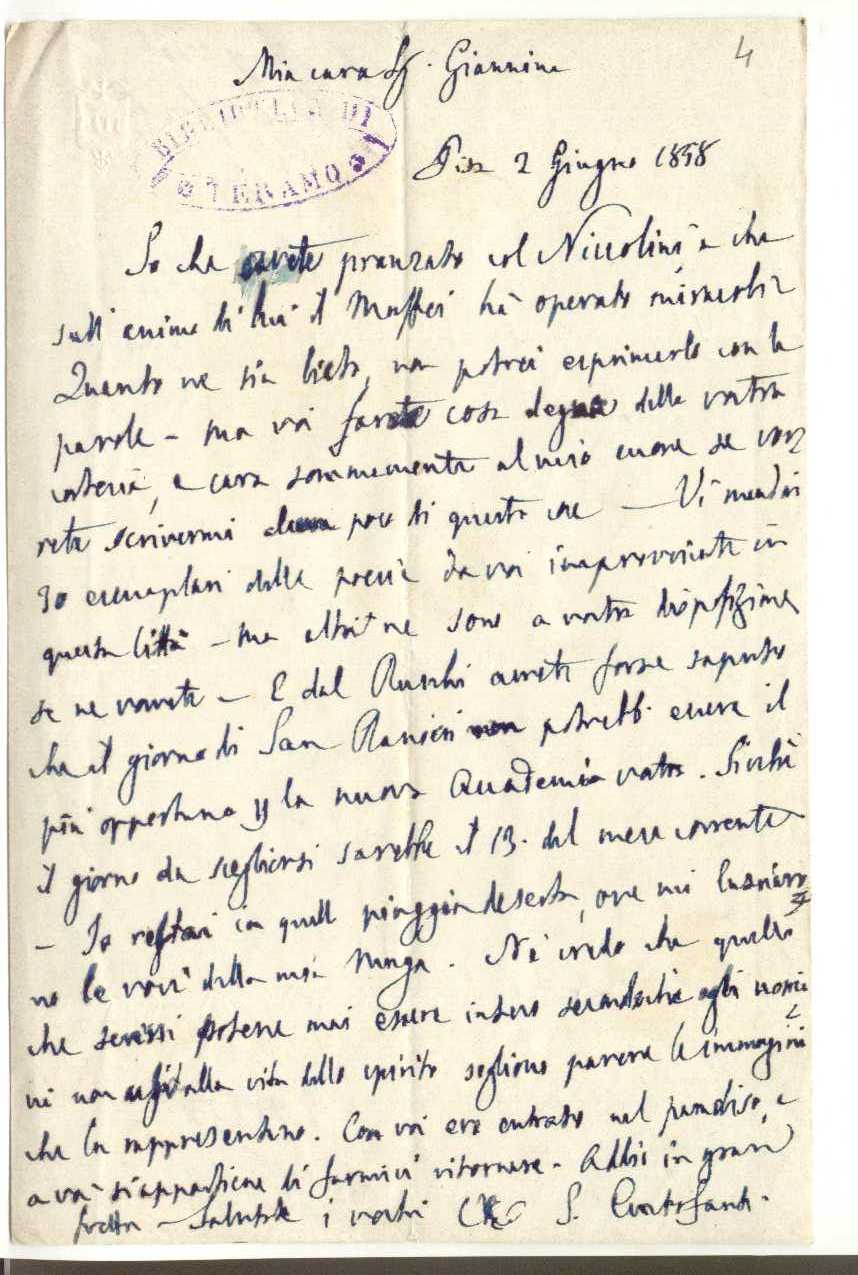 4
Mia cara Sg. Giannina
BIBLIOTECA DI
TERAMO
Pisa 2 Giugno 1858
So che avete pranzato col Niccolini e che
sull'animo di lui il Maffei ha operato miracoli
Quanto ne sia lieto, non potrei esprimerlo con le
parole - ma voi farete cosa degna della vostra
cortesia, e cara sommamente al mio cuore se vor
rete scrivermi poco di queste cose - Vi mandai
30 esemplari delle poesie da voi improvvisate in
questa Città - ma altri ne sono a vostra disposizione
se ne vorrete - E dal Ruschi avrete forse saputo
che il giorno di San Ranieri non potrebb. essere il
più opportuno p la nuova Accademia vostra. Sicchè
il giorno da scegliersi sarebbe il 13. del mese corrente
- Io restai in quell piaggia deserta, ove mi lasciaro
no le voci della mia Musa. Nè credo che quello
che scrissi potesse mai essere inteso secondochè agli uomi
ni non alla vita dello spirito sogliono parere le immagini
che la rappresentano. Con voi ero entrato nel paradiso, e
a voi s'appartiene di farmici ritornare. Addio in gran
fretta - Salutate i vostri S. Centofanti.